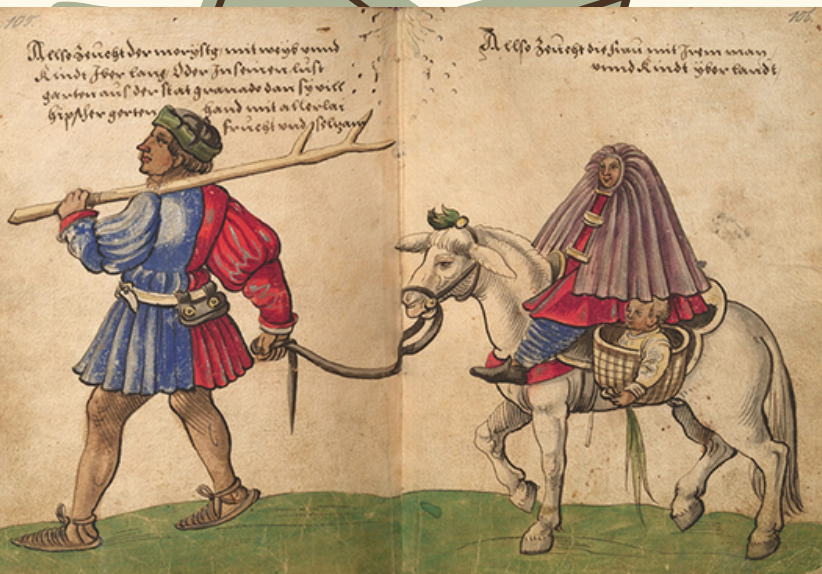 105.
Allso zeücht der morysſg, mit weyb unnd
kindt Iber lang, Oder In seinen lust
garten aus der stat granado dan sy vill
hipscher gerten hand mit allerlai
frucht und selzam
106.
Allso zeücht die Frau mit Irem man
unnd kindt yber landt